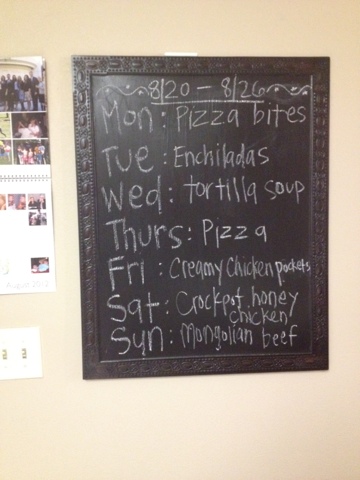 8/20 - 8/26
Mon: Pizza bites
Tue: Enchiladas
Wed: tortilla soup
Thurs: Pizza
Fri: Creamy Chicken pockets
Sat: Crockpot honey
chicken
Sun: Mongolian beef
August 2012